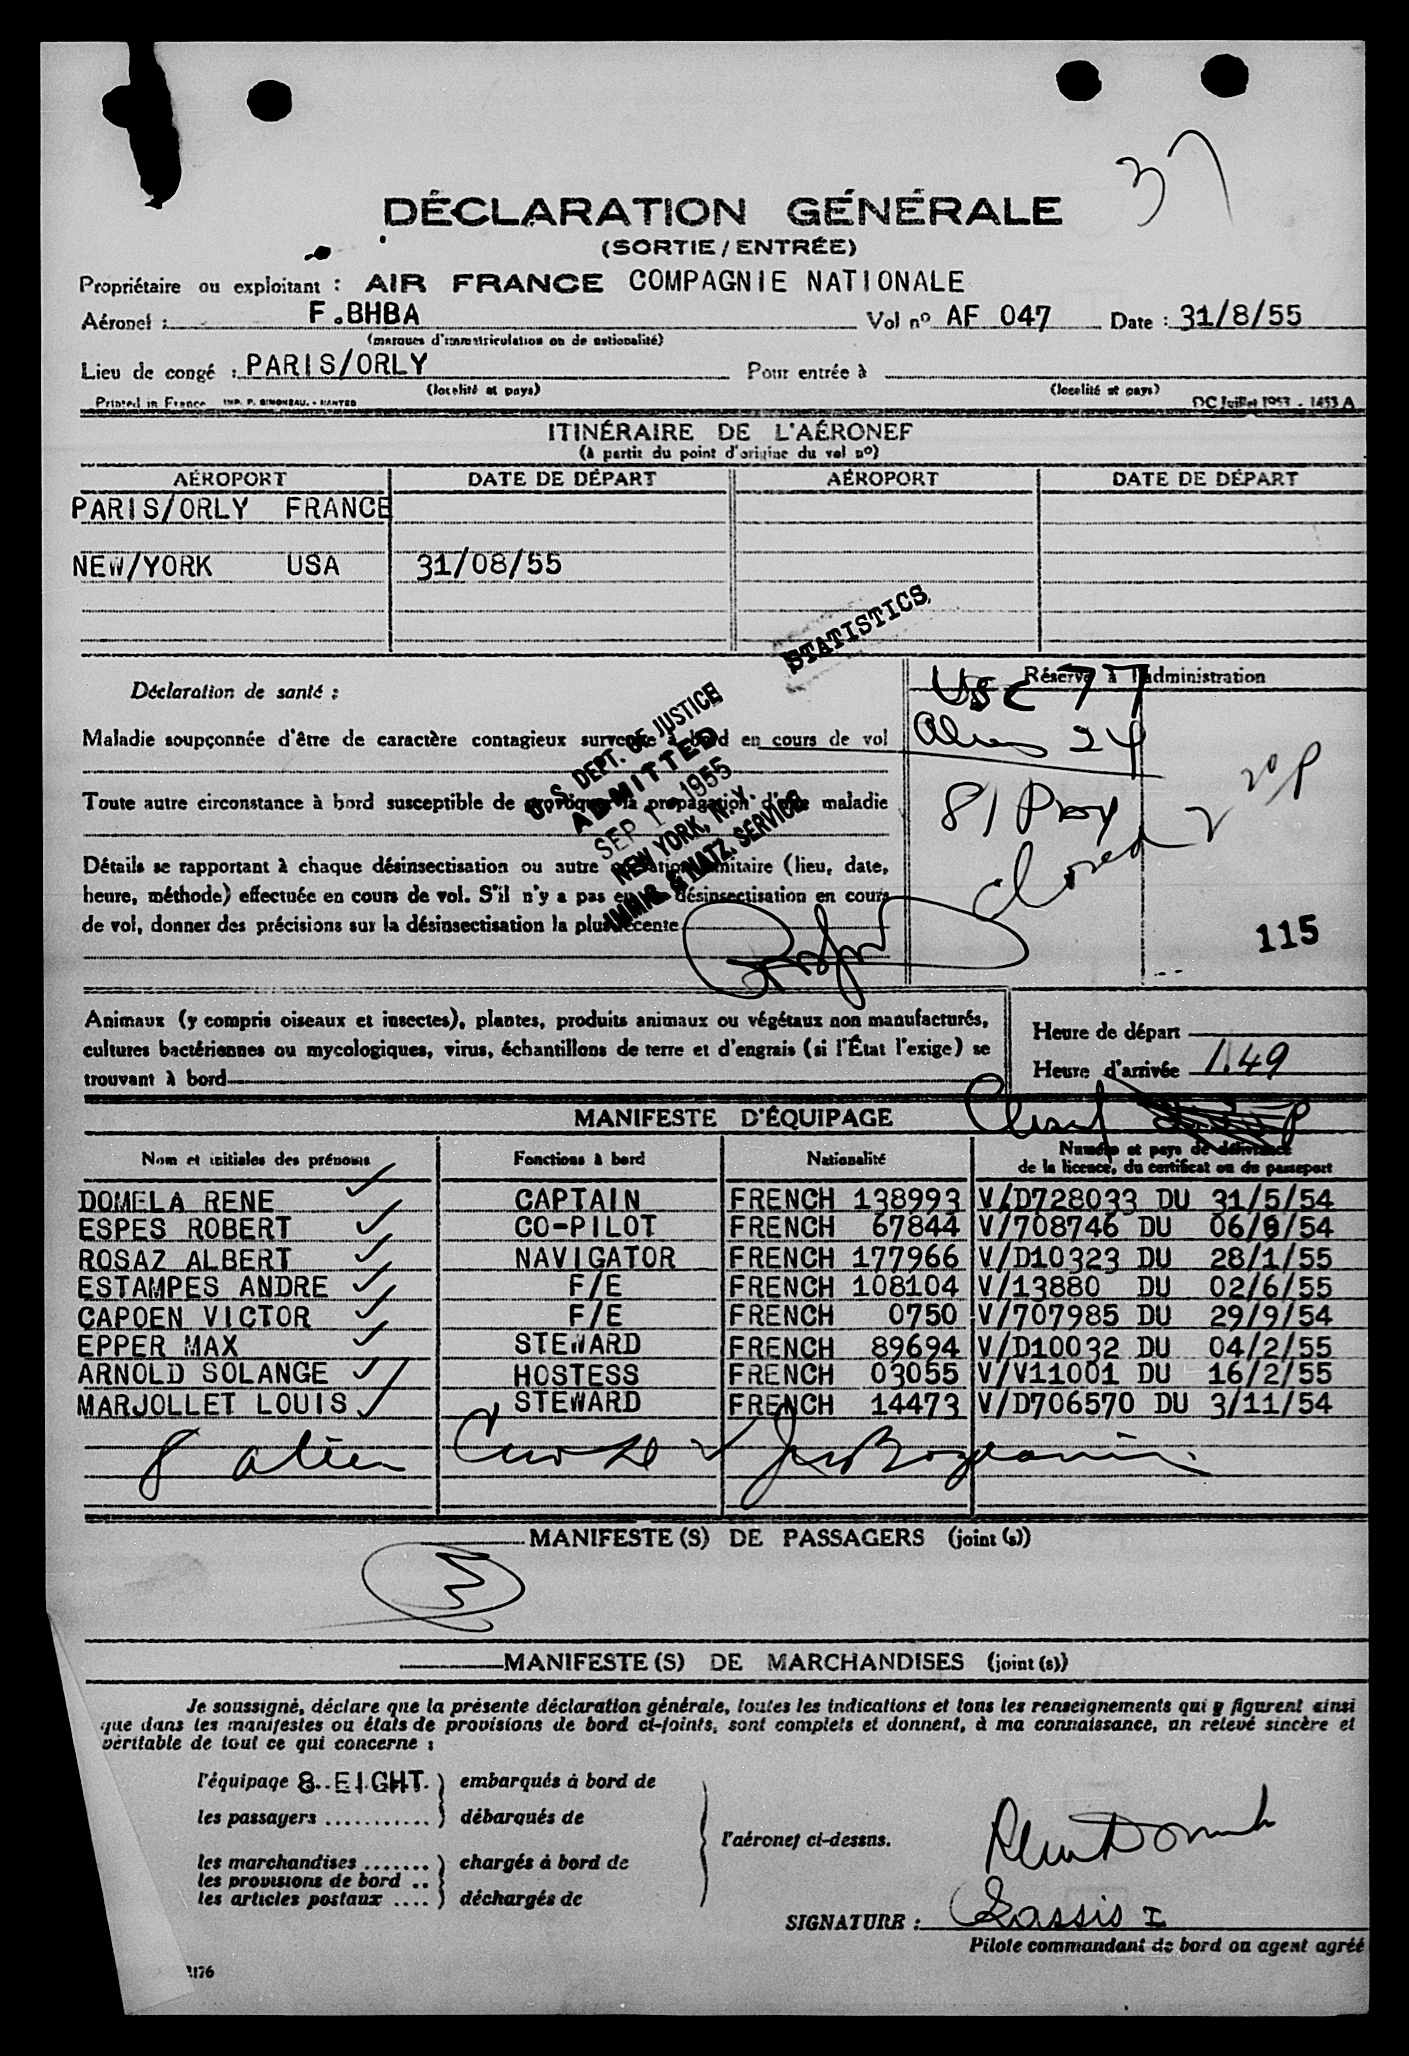 37
DÉCLARATION GÉNÉRALE
(SORTIE/ENTRÉE)
Propriétaire ou exploitant : AIR FRANCE COMPAGNIE NATIONALE
Aéronef : F.BHBA Vol nº AF 047 Date : 31/8/55
(marques d'immatriculation ou de nationalité)
Lieu de congé : PARIS/ORLY Pour entrée à
(localité et pays) (localité et pays)
Printed in France IMP. P. SIMONEAU. - NANTES DC Juillet 1953 - 1453 A
ITINÉRAIRE DE L'AÉRONEF
(à partir du point d'origine du vol nº)
AÉROPORT DATE DE DÉPART AÉROPORT DATE DE DÉPART
PARIS/ORLY FRANCE
NEW/YORK USA 31/08/55
STATISTICS
Déclaration de santé : Réservé à l'administration
USC 77
Maladie soupçonnée d'être de caractère contagieux survenue à bord en cours de vol
Aliens 24
U. S. DEPT. OF JUSTICE
ADMITTED
SEP 1 - 1955
NEW YORK, N.Y.
IMMIG. & NATZ. SERVICE
Toute autre circonstance à bord susceptible de provoquer la propagation d'une maladie
81
2
Détails se rapportant à chaque désinsectisation ou autre opération sanitaire (lieu, date,
heure, méthode) effectuée en cours de vol. S'il n'y a pas eu de désinsectisation en cours
de vol, donner des précisions sur la désinsectisation la plus récente
115
Animaux (y compris oiseaux et insectes), plantes, produits animaux ou végétaux non manufacturés,
cultures bactériennes ou mycologiques, virus, échantillons de terre et d'engrais (si l'État l'exige) se
trouvant à bord
Heure de départ
Heure d'arrivée 1.49
MANIFESTE D'ÉQUIPAGE
Nom et initiales des prénoms Fonctions à bord Nationalité Numéro et pays de délivrance
de la licence, du certificat ou du passeport
DOMELA RENE CAPTAIN FRENCH 138993 V/D728033 DU 31/5/54
ESPES ROBERT CO-PILOT FRENCH 67844 V/708746 DU 06/9/54
ROSAZ ALBERT NAVIGATOR FRENCH 177966 V/D10323 DU 28/1/55
ESTAMPES ANDRE F/E FRENCH 108104 V/13880 DU 02/6/55
CAPOEN VICTOR F/E FRENCH 0750 V/707985 DU 29/9/54
EPPER MAX STEWARD FRENCH 89694 V/D10032 DU 04/2/55
ARNOLD SOLANGE HOSTESS FRENCH 03055 V/V11001 DU 16/2/55
MARJOLLET LOUIS STEWARD FRENCH 14473 V/D706570 DU 3/11/54
8 alien
MANIFESTE(S) DE PASSAGERS (joint (s))
3
MANIFESTE(S) DE MARCHANDISES (joint (s))
Je soussigné, déclare que la présente déclaration générale, toutes les indications et tous les renseignements qui y figurent ainsi
que dans les manifestes ou états de provisions de bord ci-joints, sont complets et donnent, à ma connaissance, un relevé sincère et
véritable de tout ce qui concerne :
l'équipage 8..EIGHT. ) embarqués à bord de
les passagers ........... ) débarqués de
l'aéronef ci-dessus.
les marchandises ....... ) chargés à bord de
les provisions de bord .. )
les articles postaux .... ) déchargés de
SIGNATURE :
Pilote commandant de bord ou agent agréé
2176